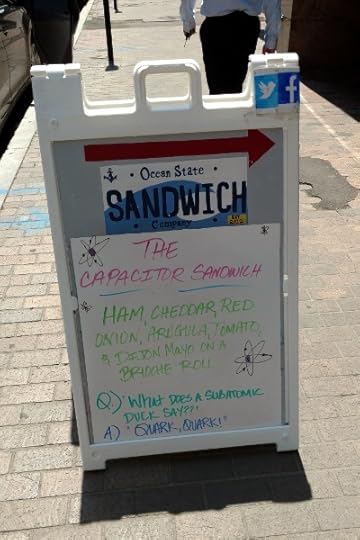 Ocean State
SANDWICH
Company
THE
CAPACITOR SANDWICH
HAM, CHEDDAR, RED
ONION, ARUGULA, TOMATO,
& DIJON MAYO ON A
BRIOCHE ROLL
Q.) "WHAT DOES A SUBATOMIC
DUCK SAY??"
A) "QUARK, QUARK!"